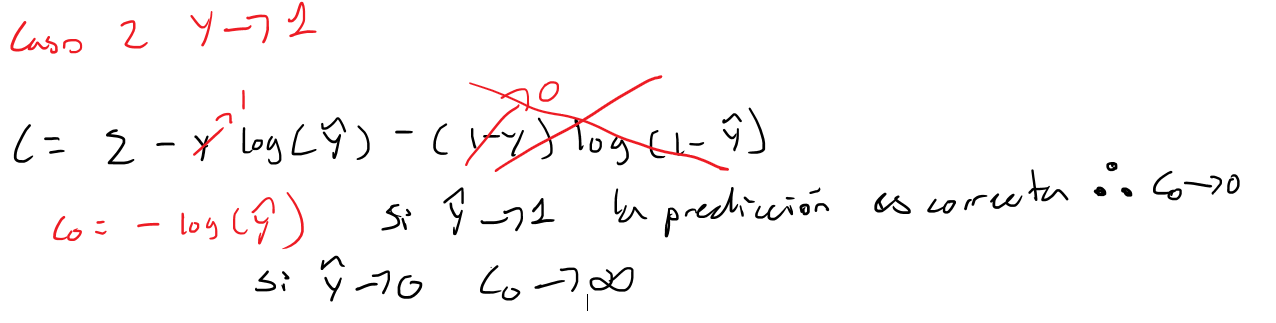 Caso 2 y → 1
C = Σ - y→1 log(ŷ) - (1-y)→0 log(1-ŷ)
C₀ = - log(ŷ) si ŷ → 1 la predicción es correcta ∴ C₀ → 0
si ŷ → 0 C₀ → ∞